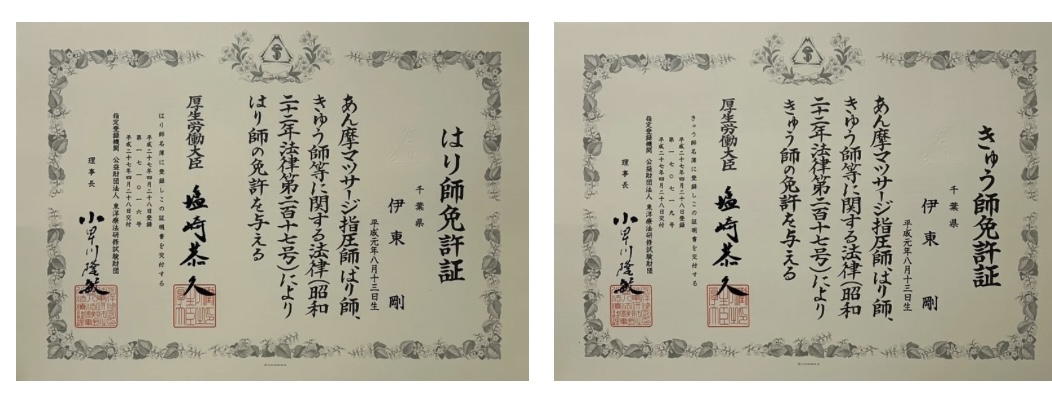 はり師免許証
千葉県
伊東 剛
平成元年八月十三日生
あん摩マツサージ指圧師、はり師、
きゆう師等に関する法律(昭和
二十二年法律第二百十七号)により
はり師の免許を与える
厚生労働大臣 塩崎恭久
はり師名簿に登録しこの証明書を交付する
平成二十七年四月二十八日登録
第一七一〇一六号
平成二十七年四月二十八日交付
指定登録機関 公益財団法人 東洋療法研修試験財団
理事長 小早川隆敏
きゅう師免許証
千葉県
伊東 剛
平成元年八月十三日生
あん摩マツサージ指圧師はり師、
きゆう師等に関する法律(昭和
二十二年法律第二百十七号)により
きゅう師の免許を与える
厚生労働大臣 塩崎恭久
きゅう師名簿に登録しこの証明書を交付する
平成二十七年四月二十八日登録
第一七〇七一九号
平成二十七年四月二十八日交付
指定登録機関 公益財団法人 東洋療法研修試験財団
理事長 小早川隆敏